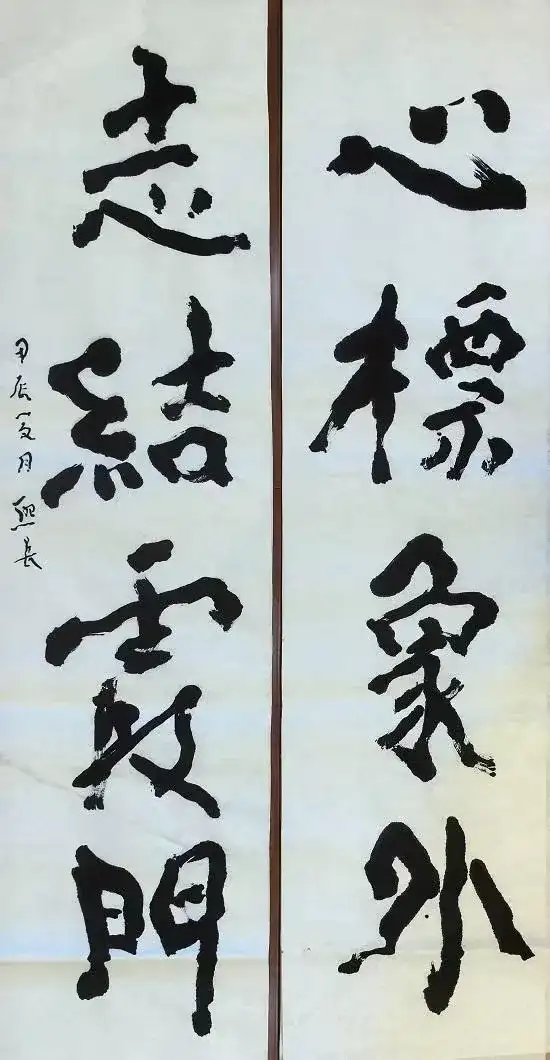 心標象外
志結霞門
甲辰夏月熙長